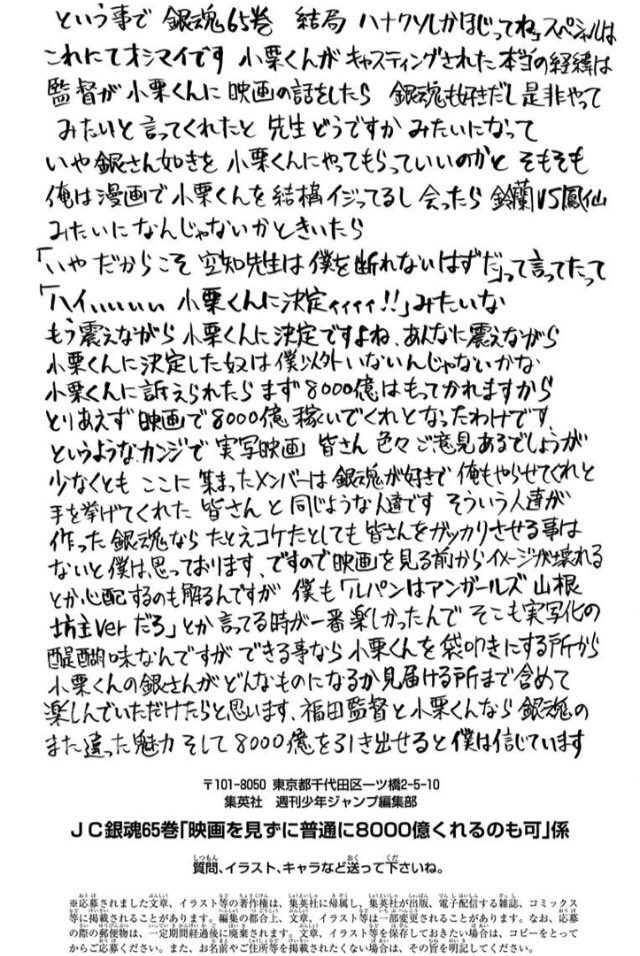 という事で 銀魂65巻 結局 ハナクソしかほじってねぇスペシャルは
これにてオシマイです 小栗くんが キャスティングされた 本当の経緯は
監督が 小栗くんに 映画の話をしたら 銀魂も好きだし 是非やって
みたいと 言ってくれたと 先生どうですか みたいになって
いや 銀さん如きを 小栗くんにやってもらっていいのかと そもそも
俺は漫画で 小栗くんを 結構イジってるし 会ったら 鈴蘭VS鳳仙
みたいになんじゃないかときいたら
「いや だからこそ 空知先生は 僕を断れないはずだ」って言ってたって
「ハイ、、、、、、 小栗くんに決定ィィィィ!!」みたいな
もう震えながら 小栗くんに決定ですよね、あんなに震えながら
小栗くんに決定した奴は僕以外いないんじゃないかな
小栗くんに訴えられたら まず8000億はもってかれますから
とりあえず 映画で8000億 稼いでくれとなったわけです、
というようなカンジで 実写映画 皆さん 色々ご意見あるでしょうが
少なくとも ここに 集まったメンバーは 銀魂が好きで 俺もやらせてくれと
手を挙げてくれた 皆さんと同じような人達です そういう人達が
作った 銀魂なら たとえコケたとしても 皆さんをガッカリさせる事は
ないと僕は思っております、ですので映画を見る前からイメージが壊れる
とか心配するのも解るんですが 僕も「ルパンはアンガールズ 山根
坊主verだろ」とか 言ってる時が一番楽しかったんで そこも実写化の
醍醐味なんですが できる事なら 小栗くんを袋叩きにする所から
小栗くんの銀さんが どんなものになるか 見届ける所まで含めて
楽しんでいただけたらと思います、福田監督と小栗くんなら 銀魂の
また違った魅力 そして8000億を引き出せると僕は信じています
〒101-8050 東京都千代田区一ツ橋2-5-10
集英社 週刊少年ジャンプ編集部
JC銀魂65巻「映画を見ずに普通に8000億くれるのも可」係
質問、イラスト、キャラなど送って下さいね。
※応募されました文章、イラスト等の著作権は、集英社に帰属し、集英社が出版、電子配信する雑誌、コミックス
等に掲載されることがあります。編集の都合上、文章、イラスト等は一部変更されることがあります。なお、応募
の際の郵便物は、一定期間経過後に廃棄されます。文章、イラスト等を保存しておきたい場合は、コピーをとって
からご応募ください。また、お名前やご住所等を掲載されたくない場合は、その旨を明記してください。